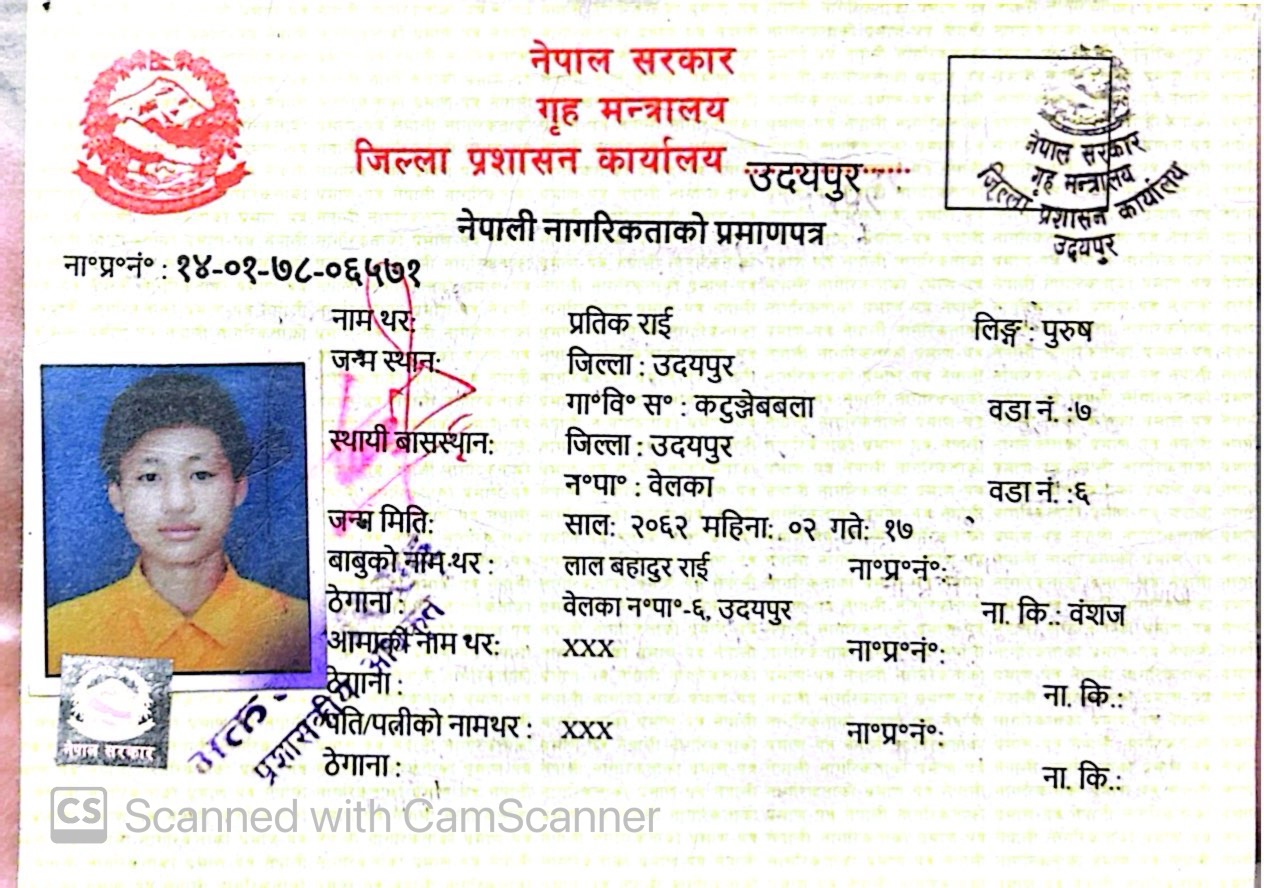 नेपाल सरकार
गृह मन्त्रालय
जिल्ला प्रशासन कार्यालय उदयपुर
नेपाल सरकार
गृह मन्त्रालय
जिल्ला प्रशासन कार्यालय
उदयपुर
नेपाली नागरिकताको प्रमाणपत्र
ना°प्र°नं° : १४-०१-७८-०६५७१
नाम थर: प्रतिक राई लिङ्ग : पुरुष
जन्म स्थान: जिल्ला : उदयपुर
गा°वि° स° : कटुञ्जेबबला वडा नं. :७
स्थायी बासस्थान: जिल्ला : उदयपुर
न°पा° : वेलका वडा नं. :६
जन्म मिति: साल: २०६२ महिना: ०२ गते: १७
बाबुको नाम थर : लाल बहादुर राई ना°प्र°नं°:
ठेगाना : वेलका न°पा°-६, उदयपुर ना. कि.: वंशज
आमाको नाम थर: XXX ना°प्र°नं°:
ठेगाना : ना. कि.:
पति/पत्नीको नामथर : XXX ना°प्र°नं°:
ठेगाना : ना. कि.:
नेपाल सरकार
CS Scanned with CamScanner